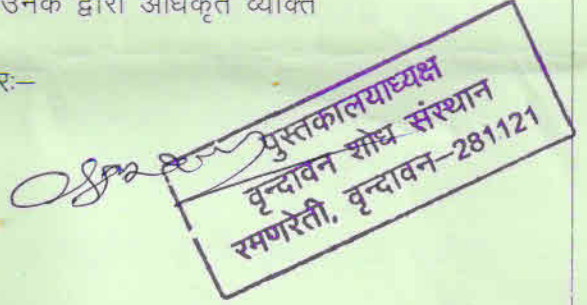 उनके द्वारा अधिकृत व्यक्ति
रः–
पुस्तकालयाध्यक्ष
वृन्दावन शोध संस्थान
रमणरेती, वृन्दावन–281121